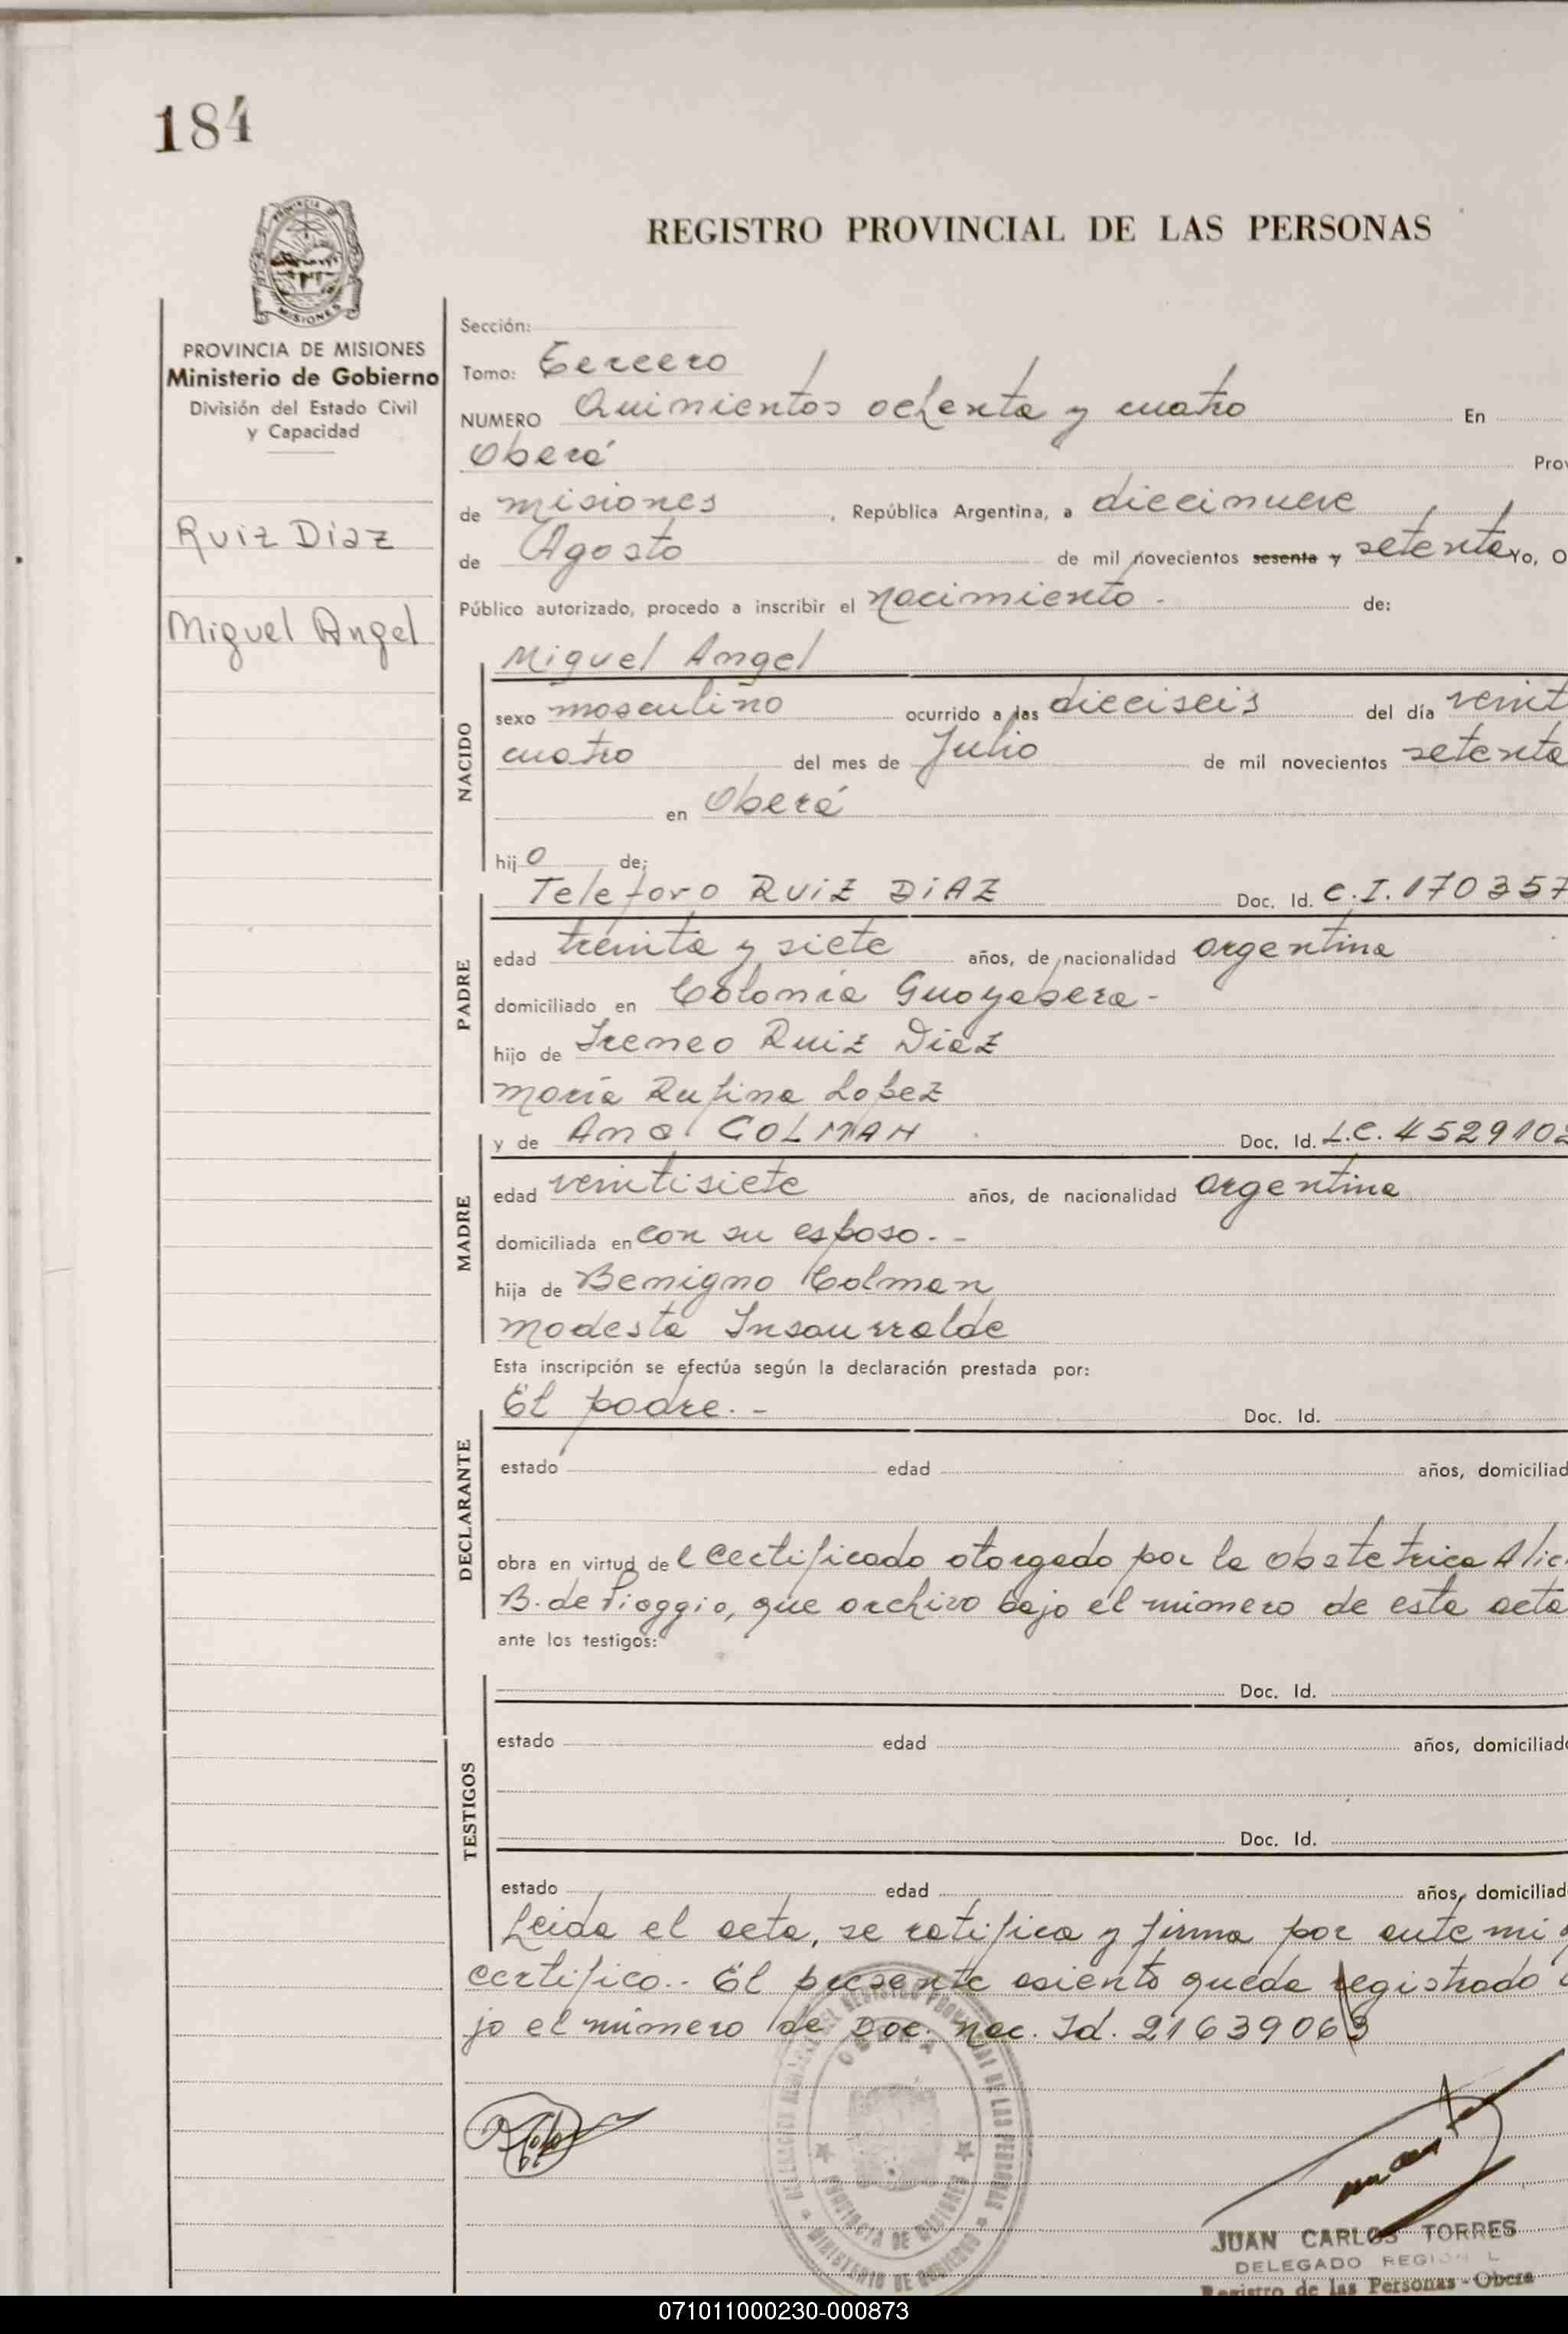 184
REGISTRO PROVINCIAL DE LAS PERSONAS
PROVINCIA DE MISIONES
Ministerio de Gobierno
División del Estado Civil
y Capacidad
Ruiz Diaz
Miguel Angel
Sección:
Tomo: Tercero
NUMERO Quinientos ochenta y cuatro En
Oberá Prov
de misiones, República Argentina, a diecinueve
de Agosto de mil novecientos sesenta y setenta Yo, O
Público autorizado, procedo a inscribir el nacimiento - de:
NACIDO
Miguel Angel
sexo masculino ocurrido a las dieciseis del día veinti
cuatro del mes de Julio de mil novecientos setenta
en Oberá
hijo de:
PADRE
Teleforo RUIZ DIAZ Doc. Id. C.I. 170357
edad treinta y siete años, de nacionalidad argentina
domiciliado en Colonia Guayabera -
hijo de Ireneo Ruiz Diaz
María Rufina Lopez
MADRE
y de Ana COLMAN Doc. Id. L.C. 4529102
edad veintisiete años, de nacionalidad argentina
domiciliada en con su esposo. -
hija de Benigno Colman
Modesta Insaurralde
Esta inscripción se efectúa según la declaración prestada por:
DECLARANTE
El padre. - Doc. Id.
estado edad años, domiciliad
obra en virtud del certificado otorgado por la Obstetrica Alic
B. de Pioggio, que archivo bajo el número de esta acta
ante los testigos:
TESTIGOS
Doc. Id.
estado edad años, domiciliado
Doc. Id.
estado edad años, domiciliad
Leida el acta, se ratifica y firma por ante mi q
certifico.- El presente asiento queda registrado
jo el número de Doc. Nac. Id. 21639063
OBERA
PROVINCIA DE MISIONES
MINISTERIO DE GOBIERNO
JUAN CARLOS TORRES
DELEGADO REGIONAL
Registro de las Personas - Obera
071011000230-000873